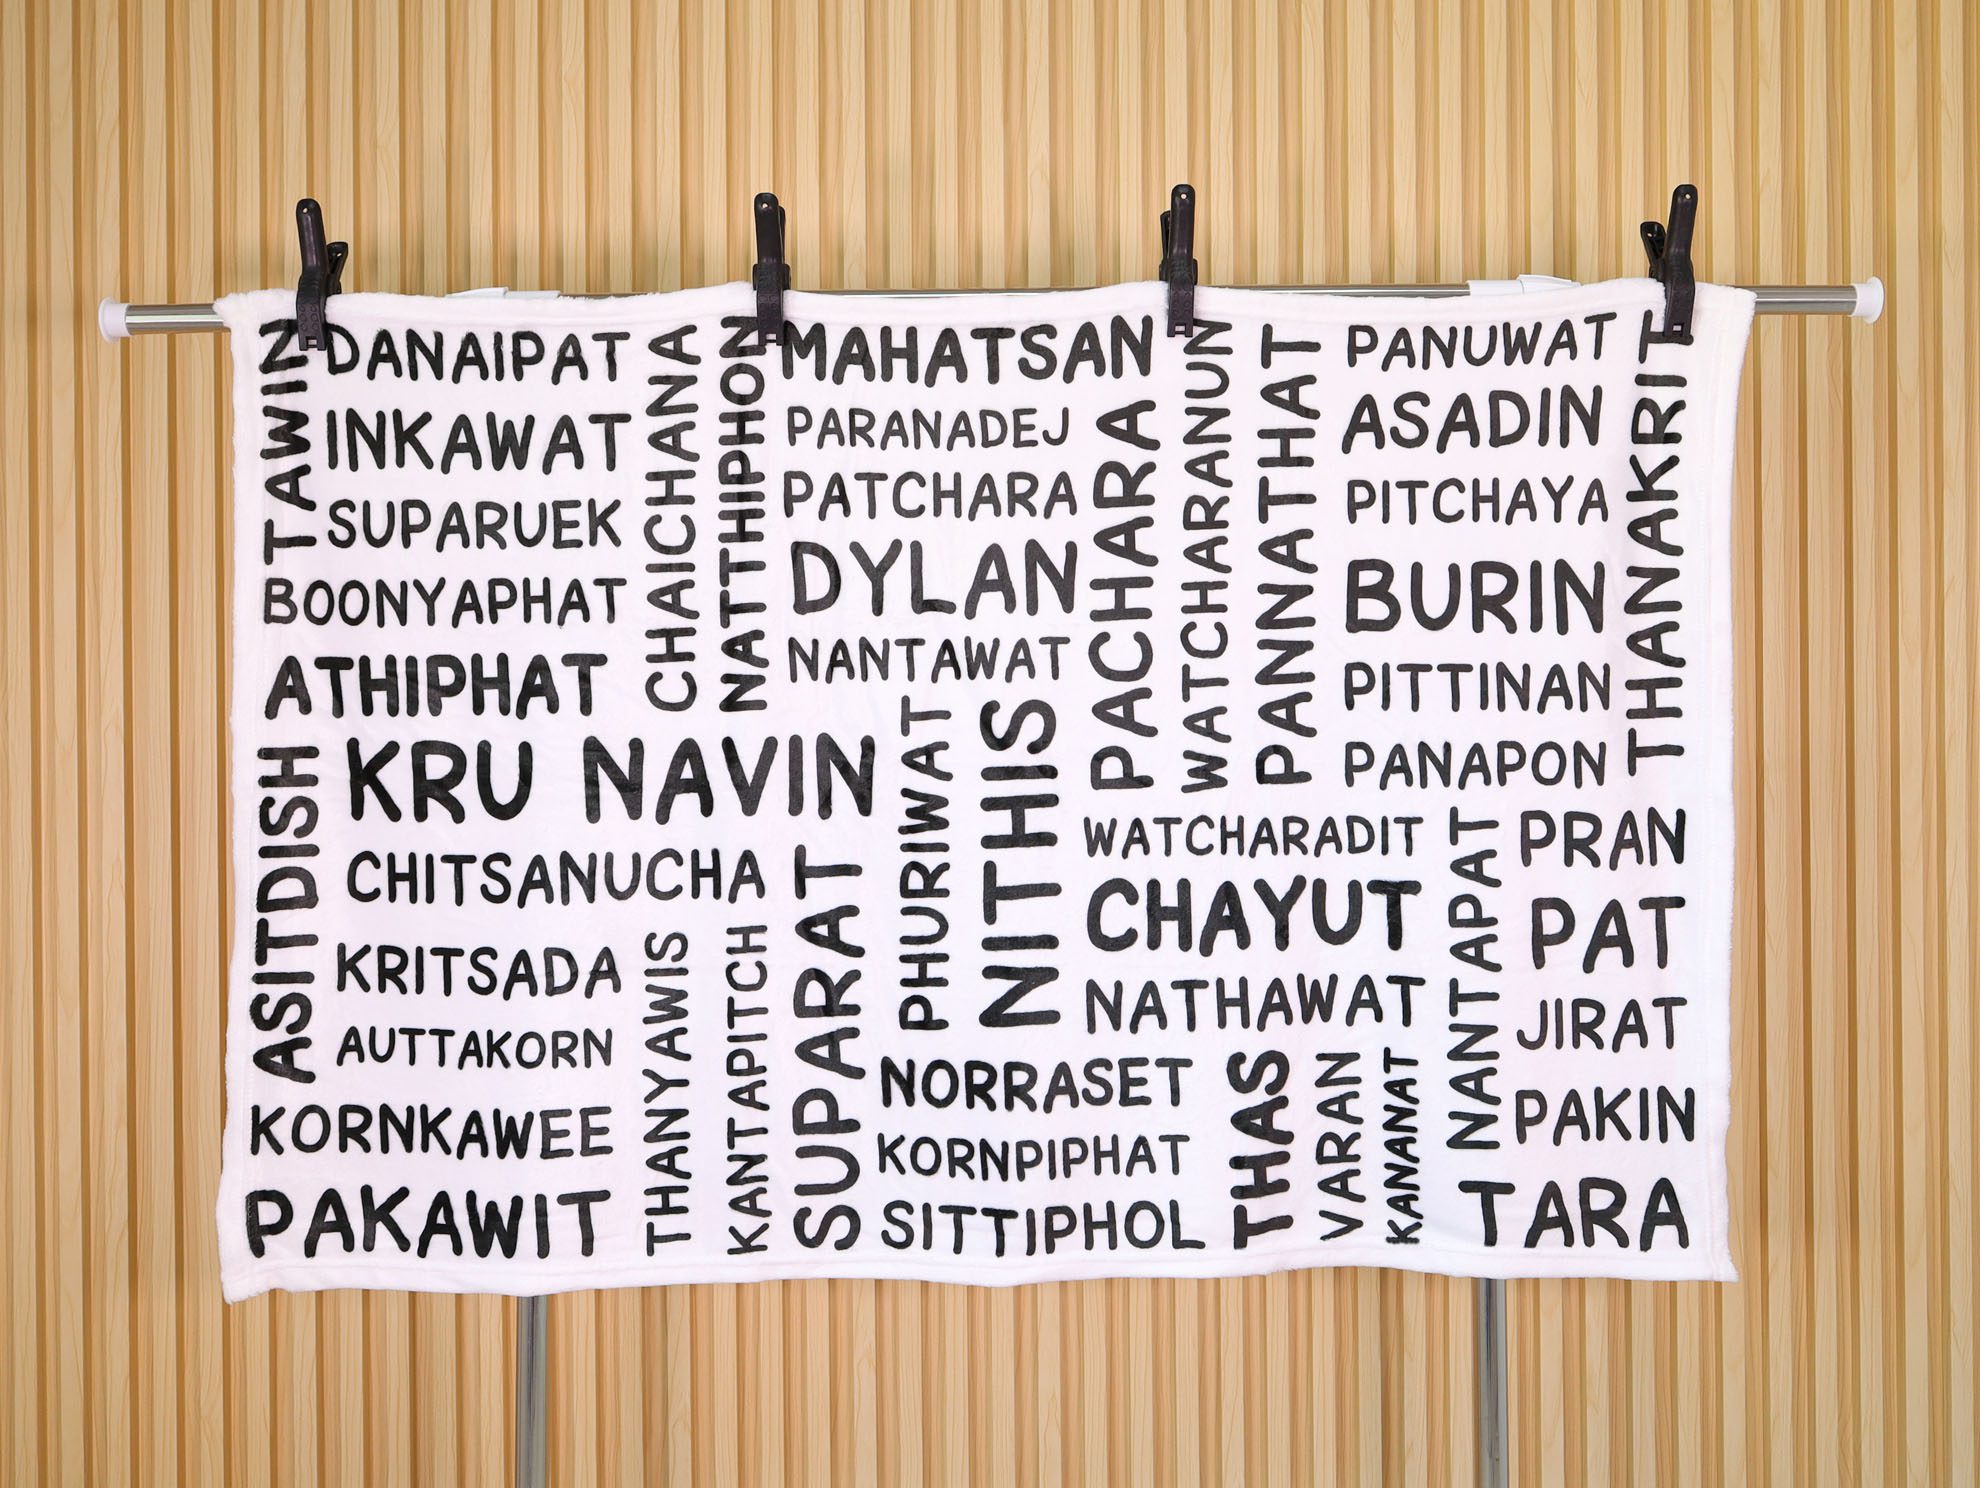 TAWIN
DANAIPAT
INKAWAT
SUPARUEK
BOONYAPHAT
ATHIPHAT
CHAICHANA
NATTHIPHON
MAHATSAN
PARANADEJ
PATCHARA
DYLAN
NANTAWAT
PACHARA
WATCHARANUN
PANNATHAT
PANUWAT
ASADIN
PITCHAYA
BURIN
PITTINAN
PANAPON
THANAKRIT
ASITDISH
KRU NAVIN
CHITSANUCHA
KRITSADA
AUTTAKORN
KORNKAWEE
PAKAWIT
THANYAWIS
KANTAPITCH
SUPARAT
PHURIWAT
NITHIS
WATCHARADIT
CHAYUT
NATHAWAT
NORRASET
KORNPIPHAT
SITTIPHOL
THAS
VARAN
KANANAT
NANTAPAT
PRAN
PAT
JIRAT
PAKIN
TARA